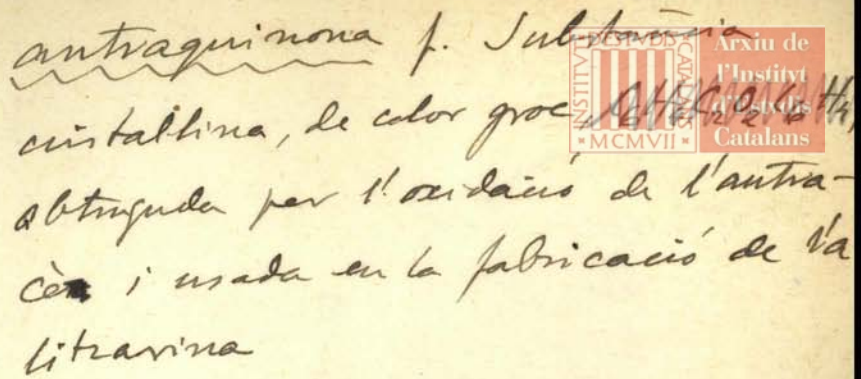 antraquinona f. Substància
cristal·lina, de color groc, C6H4C2O2C6H4,
obtinguda per l'oxidació de l'antra-
cè i usada en la fabricació de l'a
litzarina
INSTITVT D'ESTVDIS CATALANS
MCMVII
Arxiu de
l'Institvt
d'Estvdis
Catalans